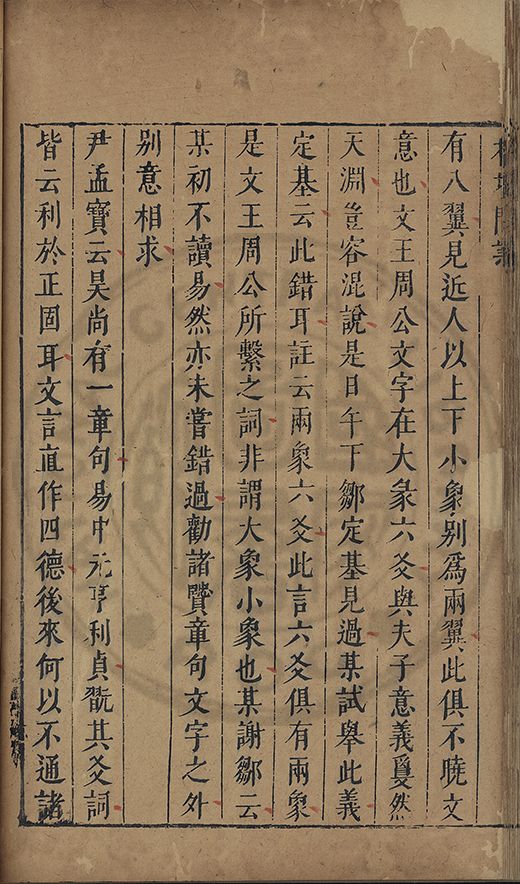 榕壇問業
有八翼見近人以上下小象別為兩翼此俱不曉文
意也文王周公文字在大彖六爻與夫子意義敻然
天淵豈容混說是日午下鄒定基見過某試舉此義
定基云此錯耳註云兩象六爻此言六爻俱有兩象
是文王周公所繫之詞非謂大象小象也某謝鄒云
某初不讀易然亦未嘗錯過勸諸賢章句文字之外
別意相求
尹孟寶云昊尚有一章句易中元亨利貞翫其爻詞
皆云利於正固耳文言直作四德後來何以不通諸